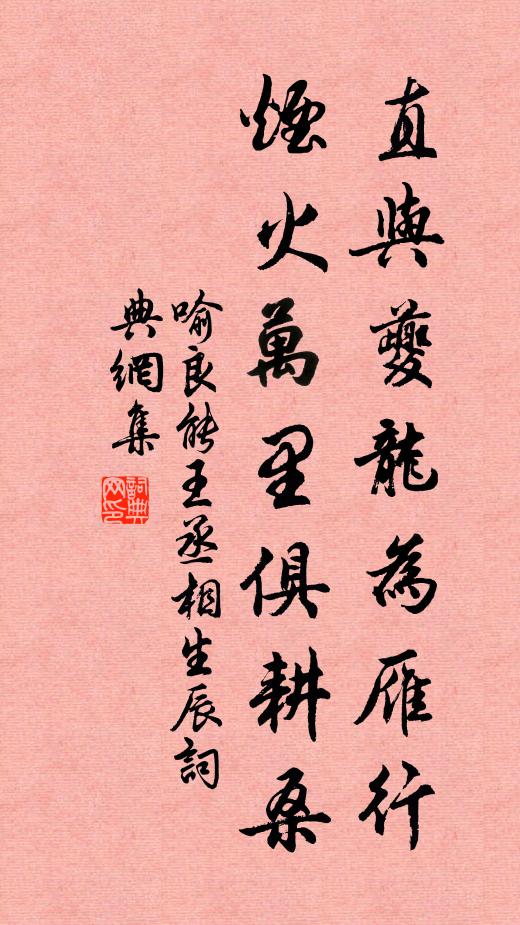 直與夔龍為雁行
煙火萬里俱耕桑
喻良能王丞相生辰詞
典網集
詞典網印